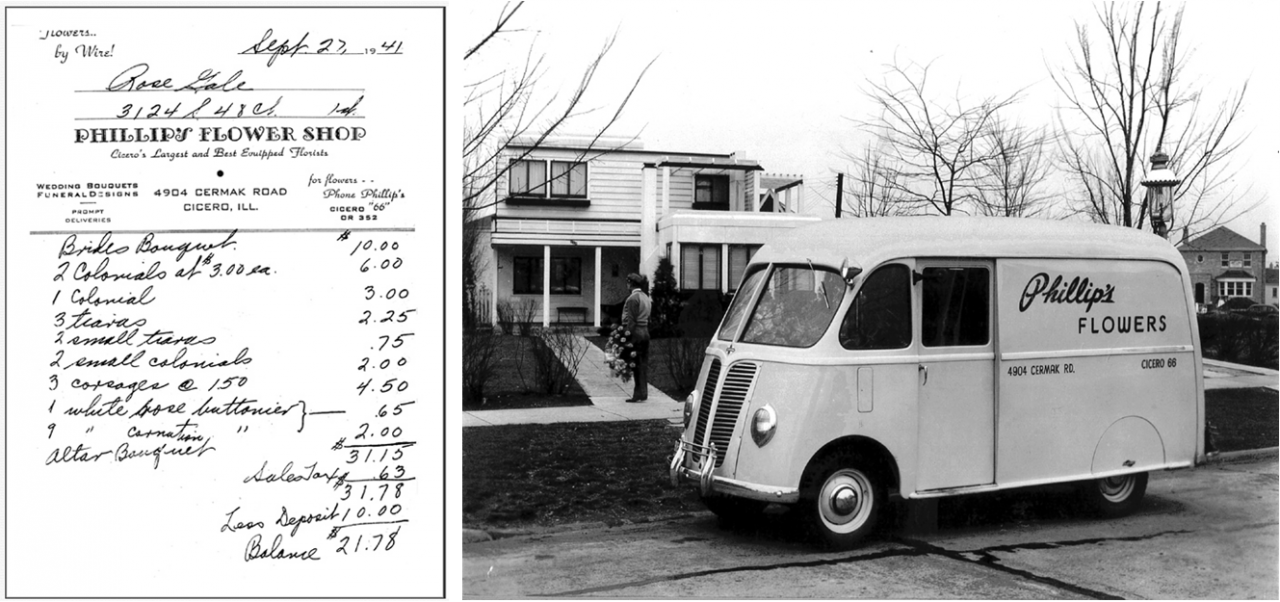 Flowers..
by Wire!
Sept. 27, 1941
Rose Gale
3124 S 48 Ct. 1st.
PHILLIP'S FLOWER SHOP
Cicero's Largest and Best Equipped Florists
WEDDING BOUQUETS
FUNERAL DESIGNS
PROMPT
DELIVERIES
4904 CERMAK ROAD
CICERO, ILL.
for flowers - -
Phone Phillip's
CICERO "66"
OR 352
Brides Bouquet. $ 10.00
2 Colonials at $3.00 ea. 6.00
1 Colonial 3.00
3 tiaras 2.25
2 small tiaras .75
2 small colonials 2.00
3 corsages @ 1.50 4.50
1 white rose buttonier } — .65
9 " carnation " 2.00
Altar Bouquet $ 31.15
Sales Tax .63
$ 31.78
Less Deposit 10.00
Balance $ 21.78
Phillip's
FLOWERS
4904 CERMAK RD. CICERO 66